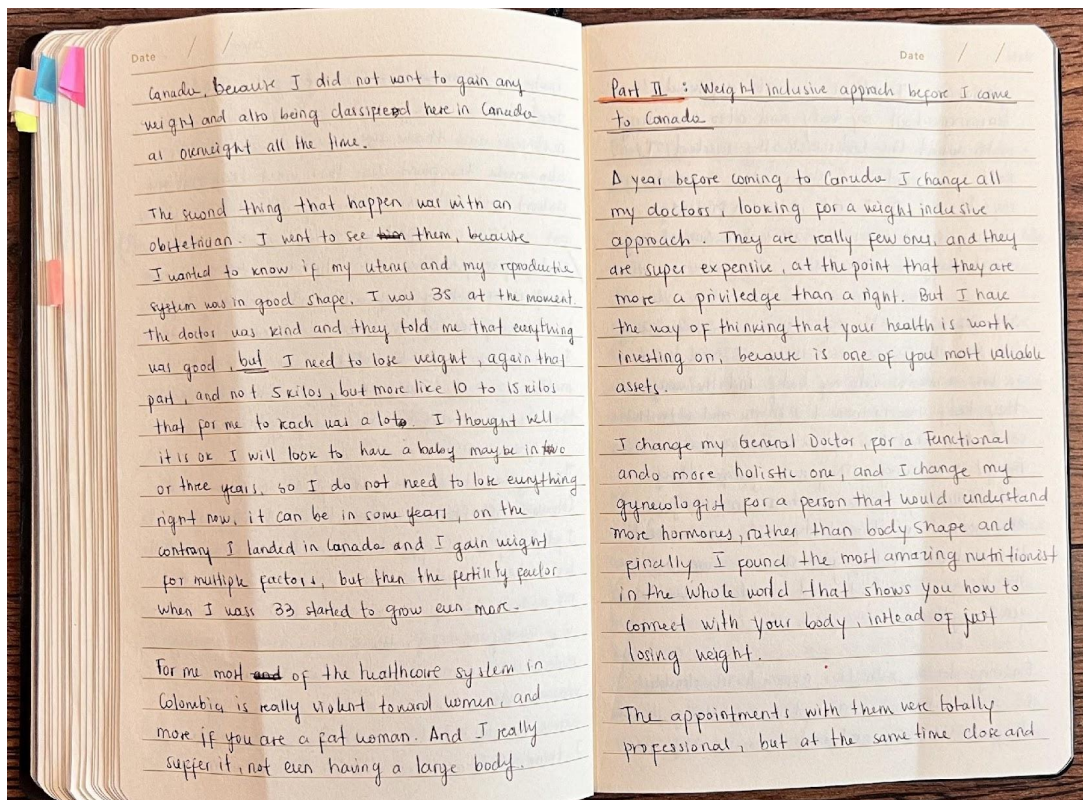 Date / /
Canada, because I did not want to gain any
weight and also being classifeed here in Canada
as overweight all the time.
The second thing that happen was with an
obstetrician. I went to see them, because
I wanted to know if my uterus and my reproductive
system was in good shape. I was 35 at the moment.
The doctor was kind and they told me that everything
was good, but I need to lose weight, again that
part, and not 5 kilos, but more like 10 to 15 kilos
that for me to reach was a lot. I thought well
it is ok I will look to have a baby maybe in two
or three years, so I do not need to lose everything
right now, it can be in some years, on the
contrary I landed in Canada and I gain weight
for multiple factors, but then the fertility factor
when I wass 33 started to grow even more.
For me most of the healthcare system in
Colombia is really violent toward women, and
more if you are a fat woman. And I really
suffer it, not even having a large body.
Date / /
Part II : Weight inclusive apprach before I came
to Canada
A year before coming to Canada I change all
my doctors, looking for a weight inclusive
approach. They are really few ones, and they
are super expensive, at the point that they are
more a priviledge than a right. But I have
the way of thinking that your health is worth
investing on, because is one of you most valuable
assets.
I change my General Doctor, for a Functional
ando more holistic one, and I change my
gynecologist for a person that would understand
more hormones, rather than body shape and
finally I found the most amazing nutritionist
in the whole world that shows you how to
connect with your body, instead of just
losing weight.
The appointments with them were totally
professional, but at the same time close and